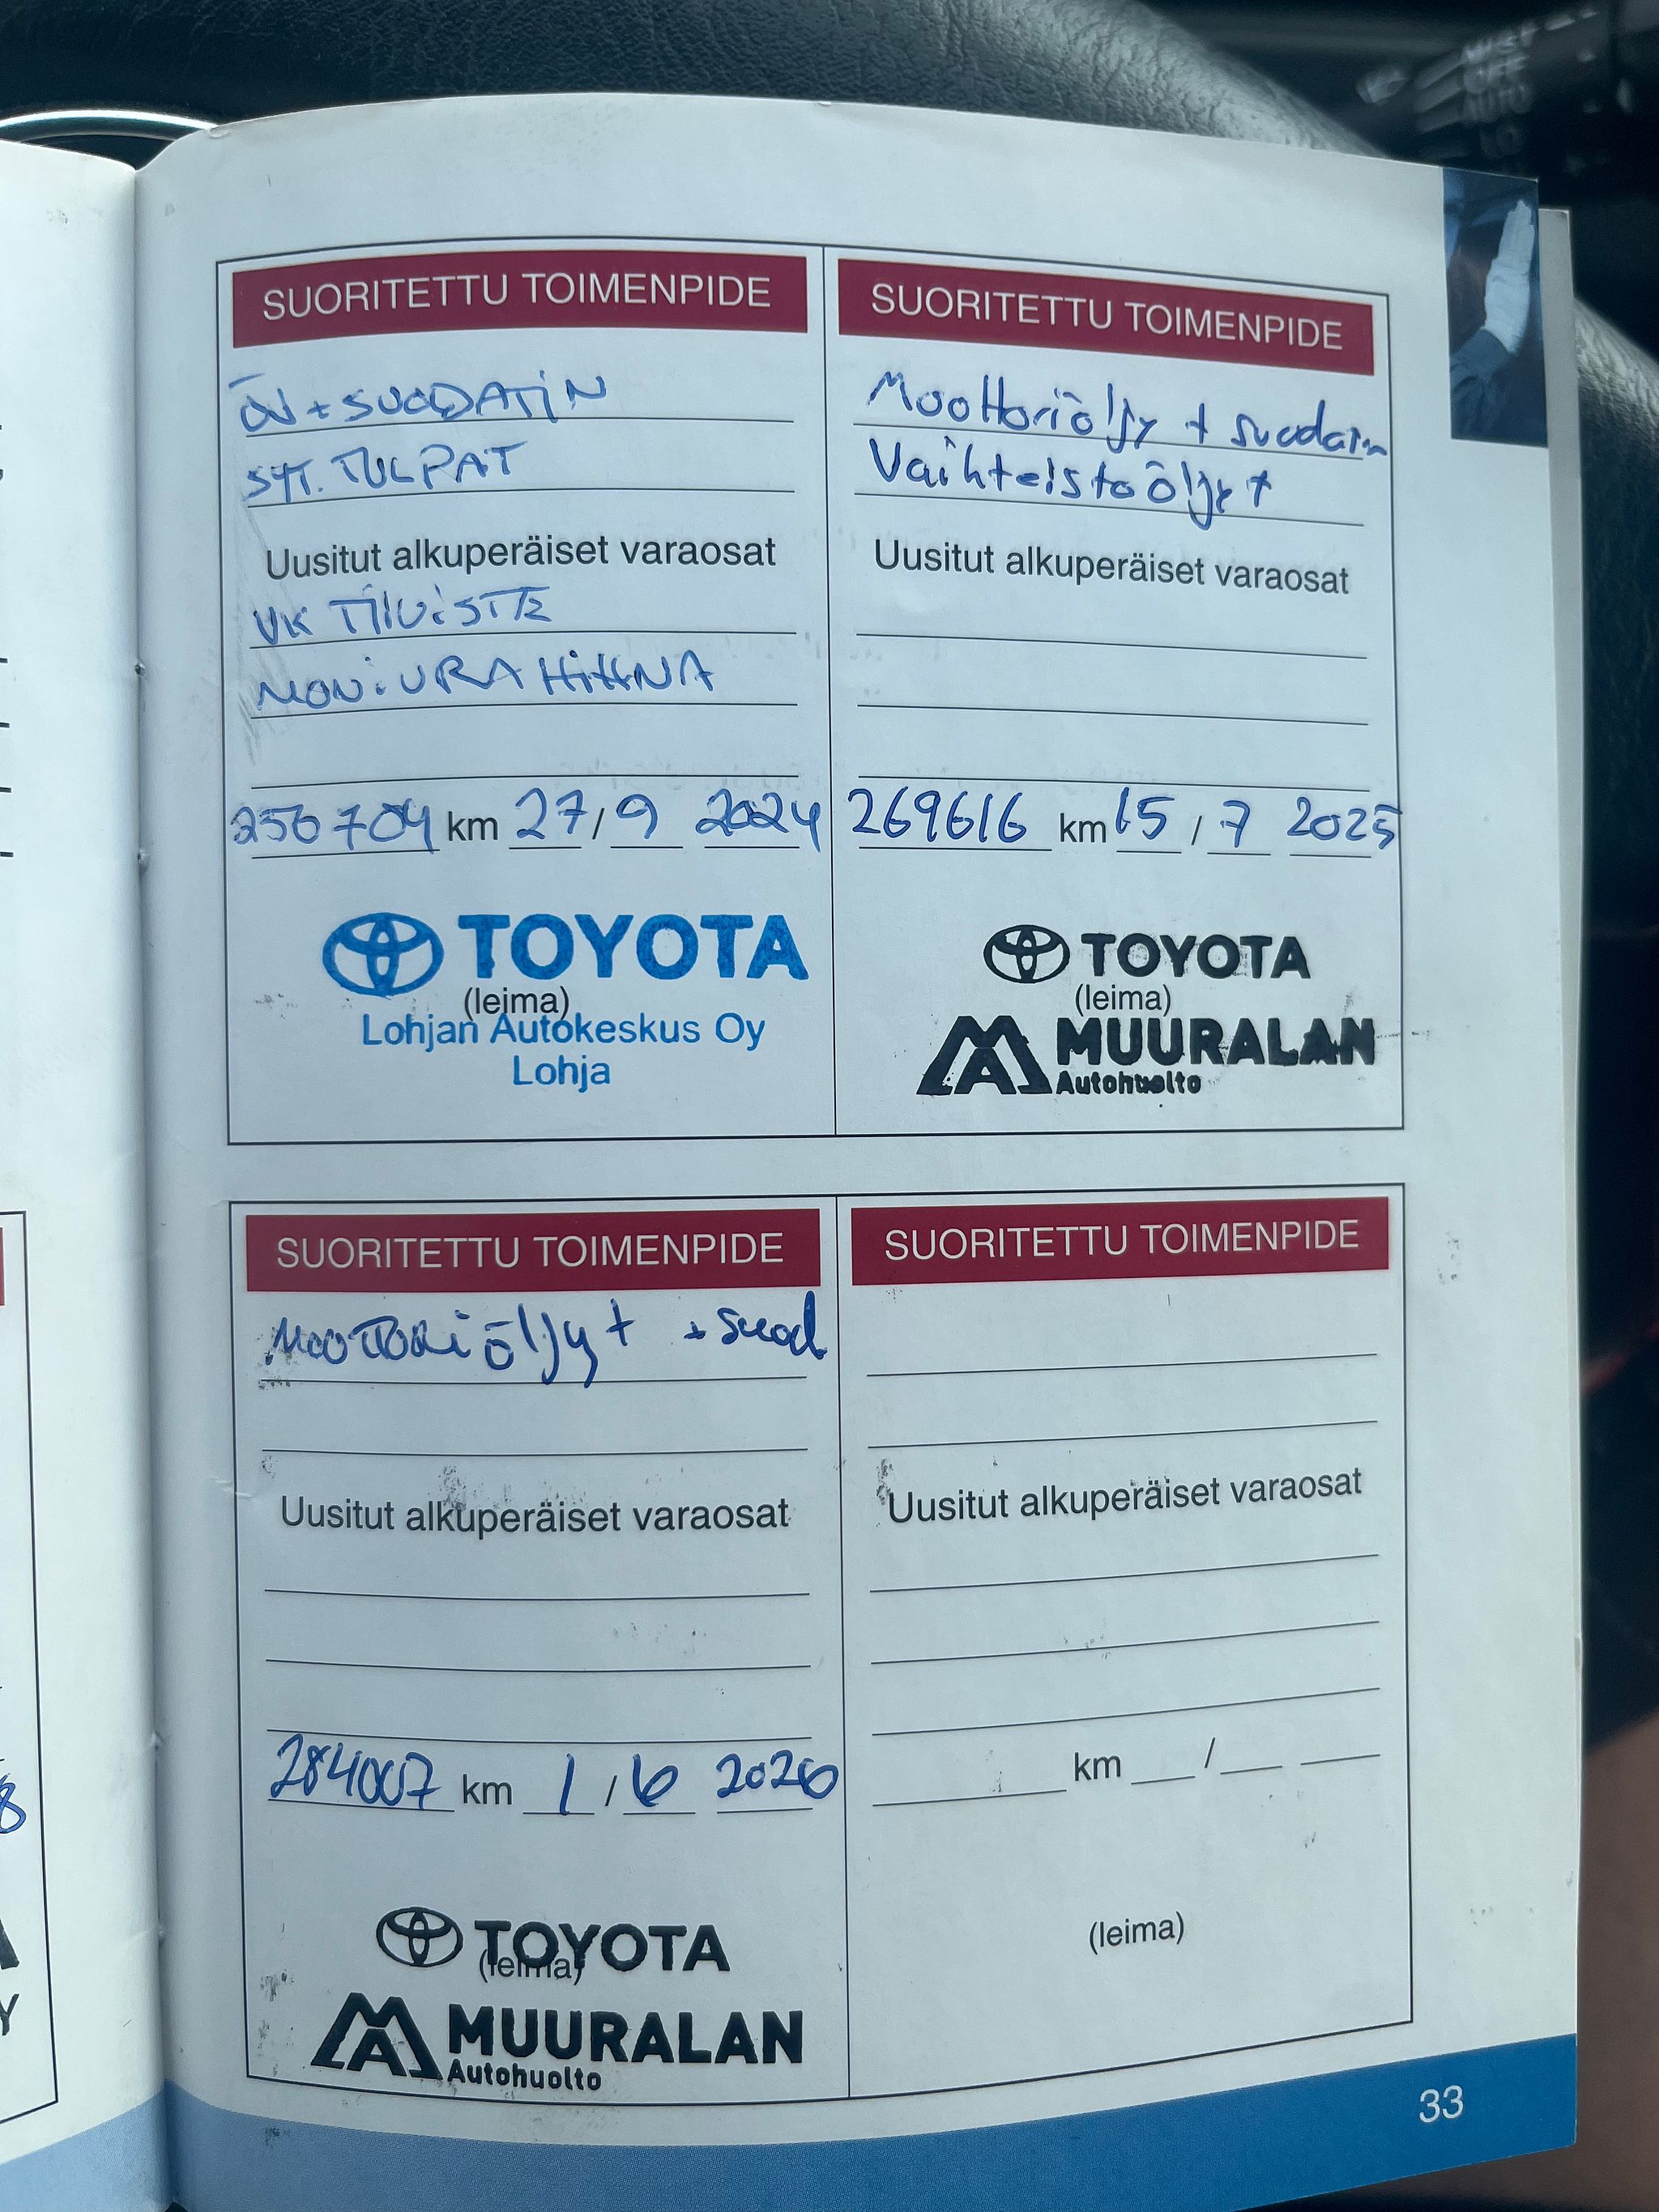 SUORITETTU TOIMENPIDE
ÖV + SUODATIN
SYT. TULPAT
Uusitut alkuperäiset varaosat
VK TIIVISTE
MONIURAHIHNA
256704 km 27/9 2024
TOYOTA
(leima)
Lohjan Autokeskus Oy
Lohja
SUORITETTU TOIMENPIDE
Moottoriöljy + suodatin
Vaihteistoöljyt
Uusitut alkuperäiset varaosat
269616 km 15/7 2025
TOYOTA
(leima)
MUURALAN
Autohuolto
SUORITETTU TOIMENPIDE
Moottoriöljyt + suod
Uusitut alkuperäiset varaosat
284007 km 1/6 2026
TOYOTA
(leima)
MUURALAN
Autohuolto
SUORITETTU TOIMENPIDE
Uusitut alkuperäiset varaosat
km /
(leima)
33
OFF
AUTO